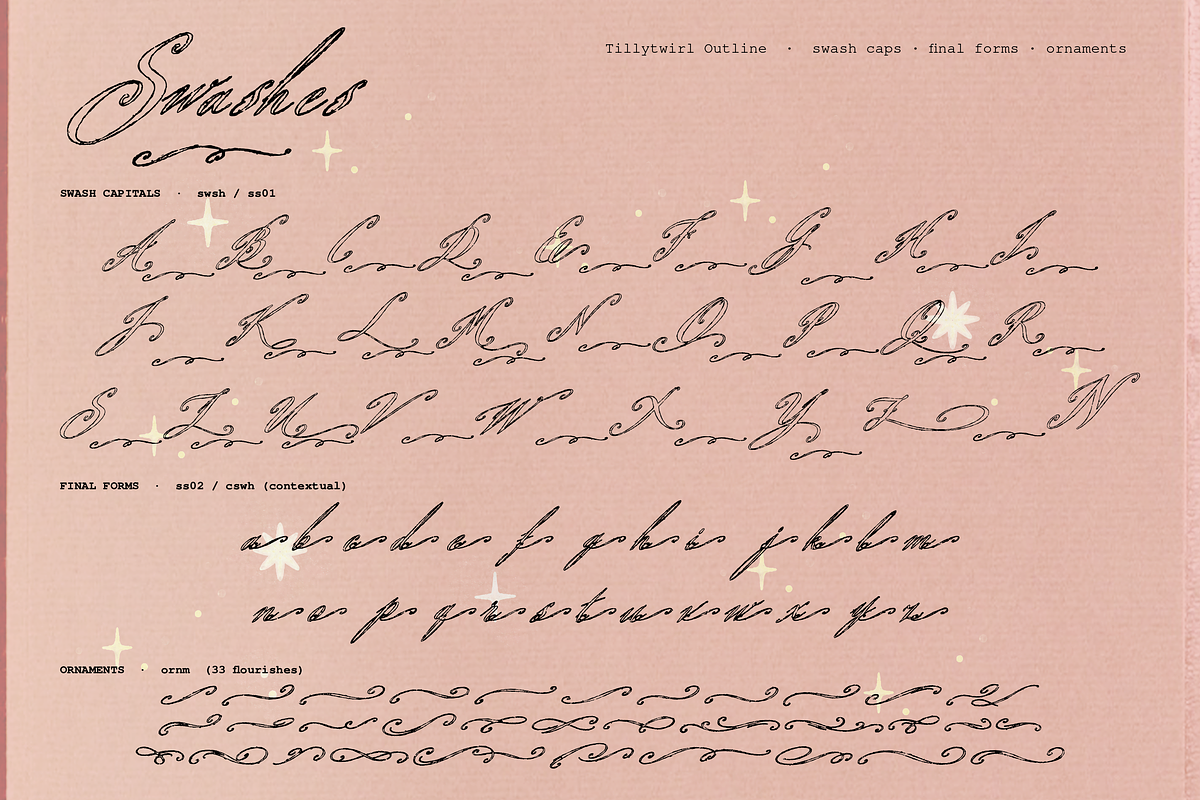 Swashes
Tillytwirl Outline · swash caps · final forms · ornaments
SWASH CAPITALS · swsh / ss01
A B C D E F G H I
J K L M N O P Q R
S T U V W X Y Z N
FINAL FORMS · ss02 / cswh (contextual)
a b c d e f g h i j k l m
n o p q r s t u v w x y z
ORNAMENTS · ornm (33 flourishes)